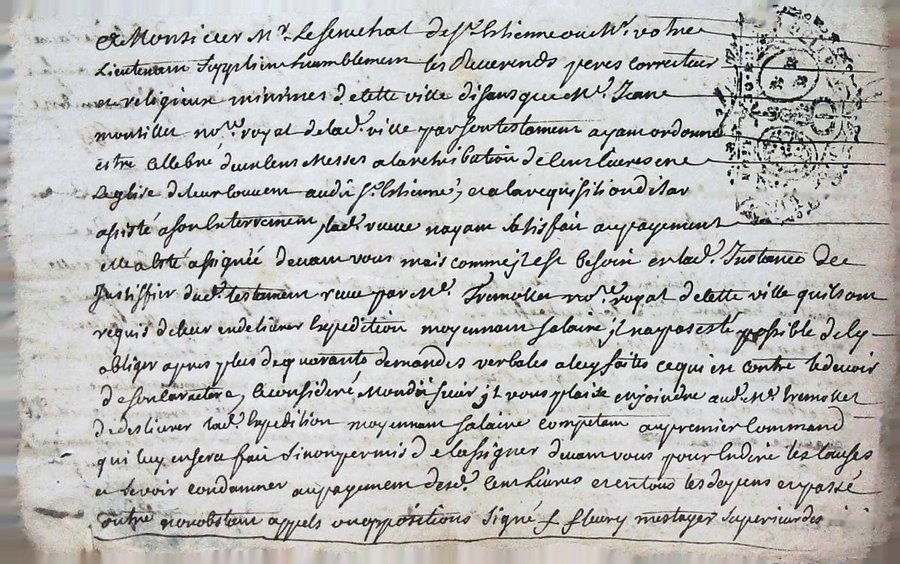 A Monsieur Mr. Le Senechal de St. Estienne ou Mr. votre
Lieutenant supplient humblement les Reverends peres correcteur
et religieux minimes de cette ville disans que Me. Jean
montillet nore. royal de lad. ville par son testament ayant ordonné
estre cellebré deux cens Messes a la retribution de cent livres en
Leglise de leur couvent aud. St. Estienne, et a la requisition
assisté a son Enterrement, lad. vueve nayant satisfait au payement
elle a esté assignée devant vous mais comme jl est besoin en lad. Instance de
Justiffier dud. testament receu par Me. Tremollet nore. royal de cette ville quils ont
requis de leur en delivrer Expedition moyennant salaire jl na pas esté possible de ly
obliger apres plus de quarante demandes verbales a luy faites ce qui est contre le devoir
de son Caractere, Ce consideré Mondit sieur jl vous plaise enjoindre aud. Me. tremollet
de deslivrer lad. Expedition moyennant salaire competant au premier Command
qui luy en sera fait sinon permis de lassigner devant vous pour En dire les Causes
et se voir condamner au payement desd. Cent Livres et en tous les depens et passé
outre nonobstant appels ou oppositions signé f. fleury messager superieur des